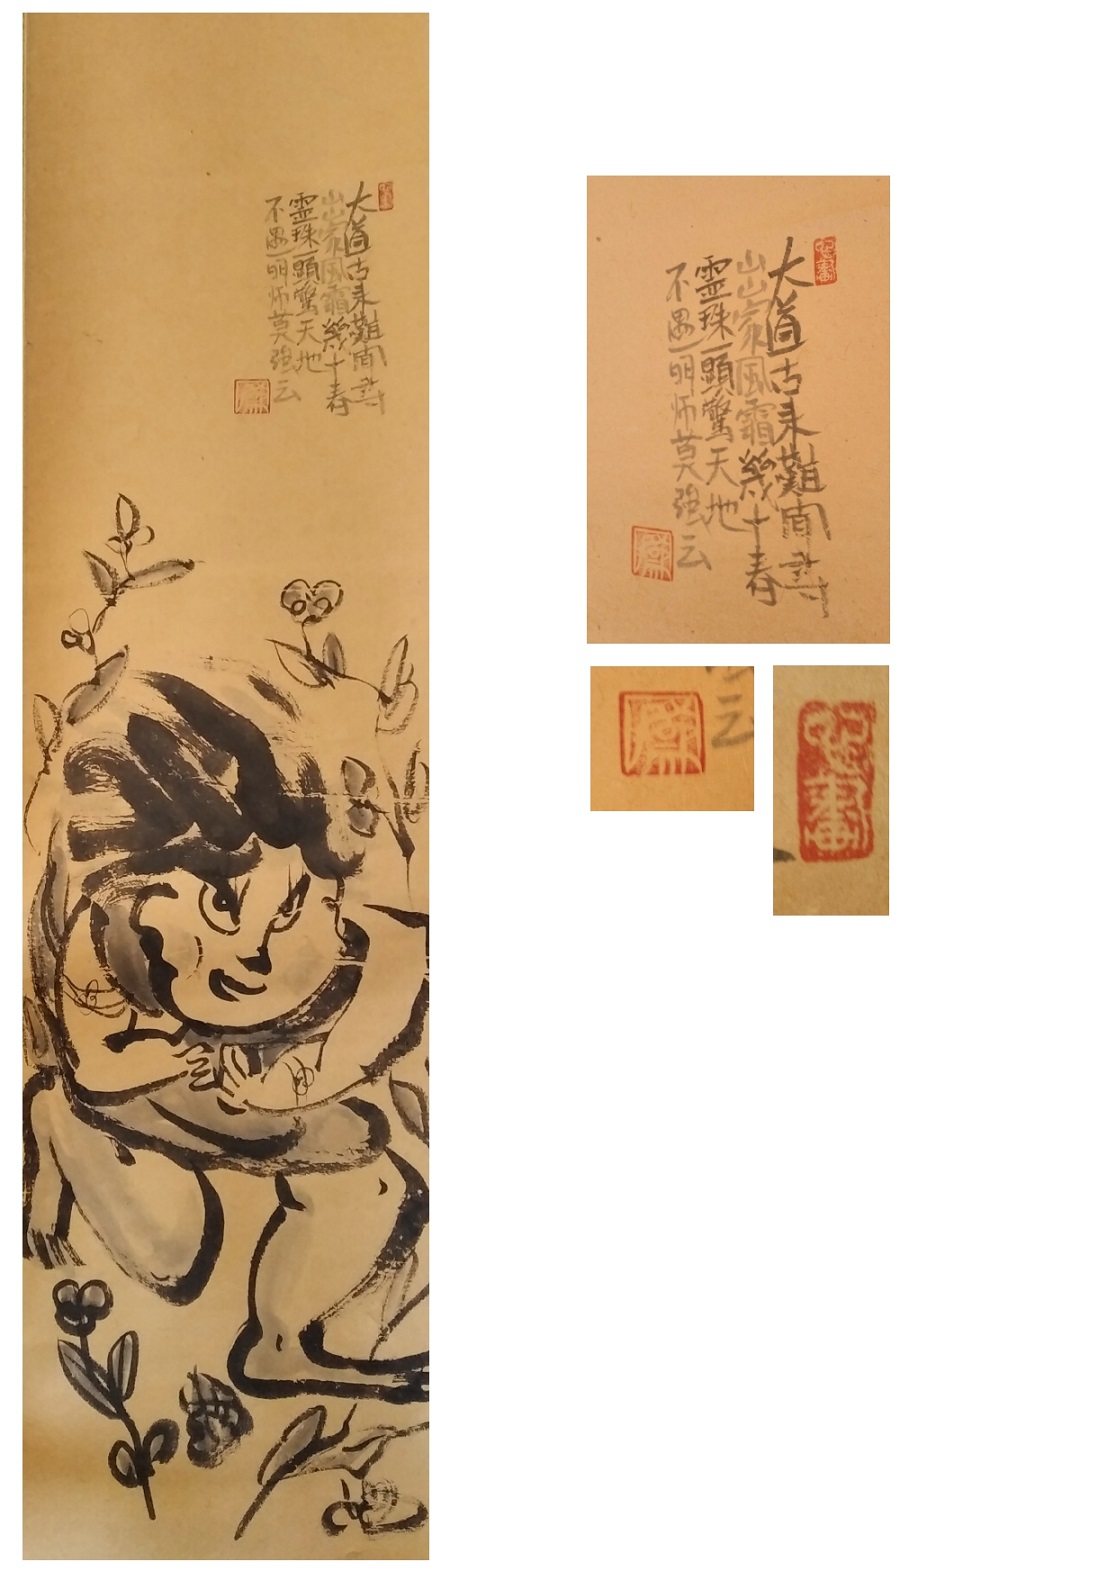 大道古来難問尋
出家風霜幾十春
霊珠一顆驚天地
不遇明师莫強云